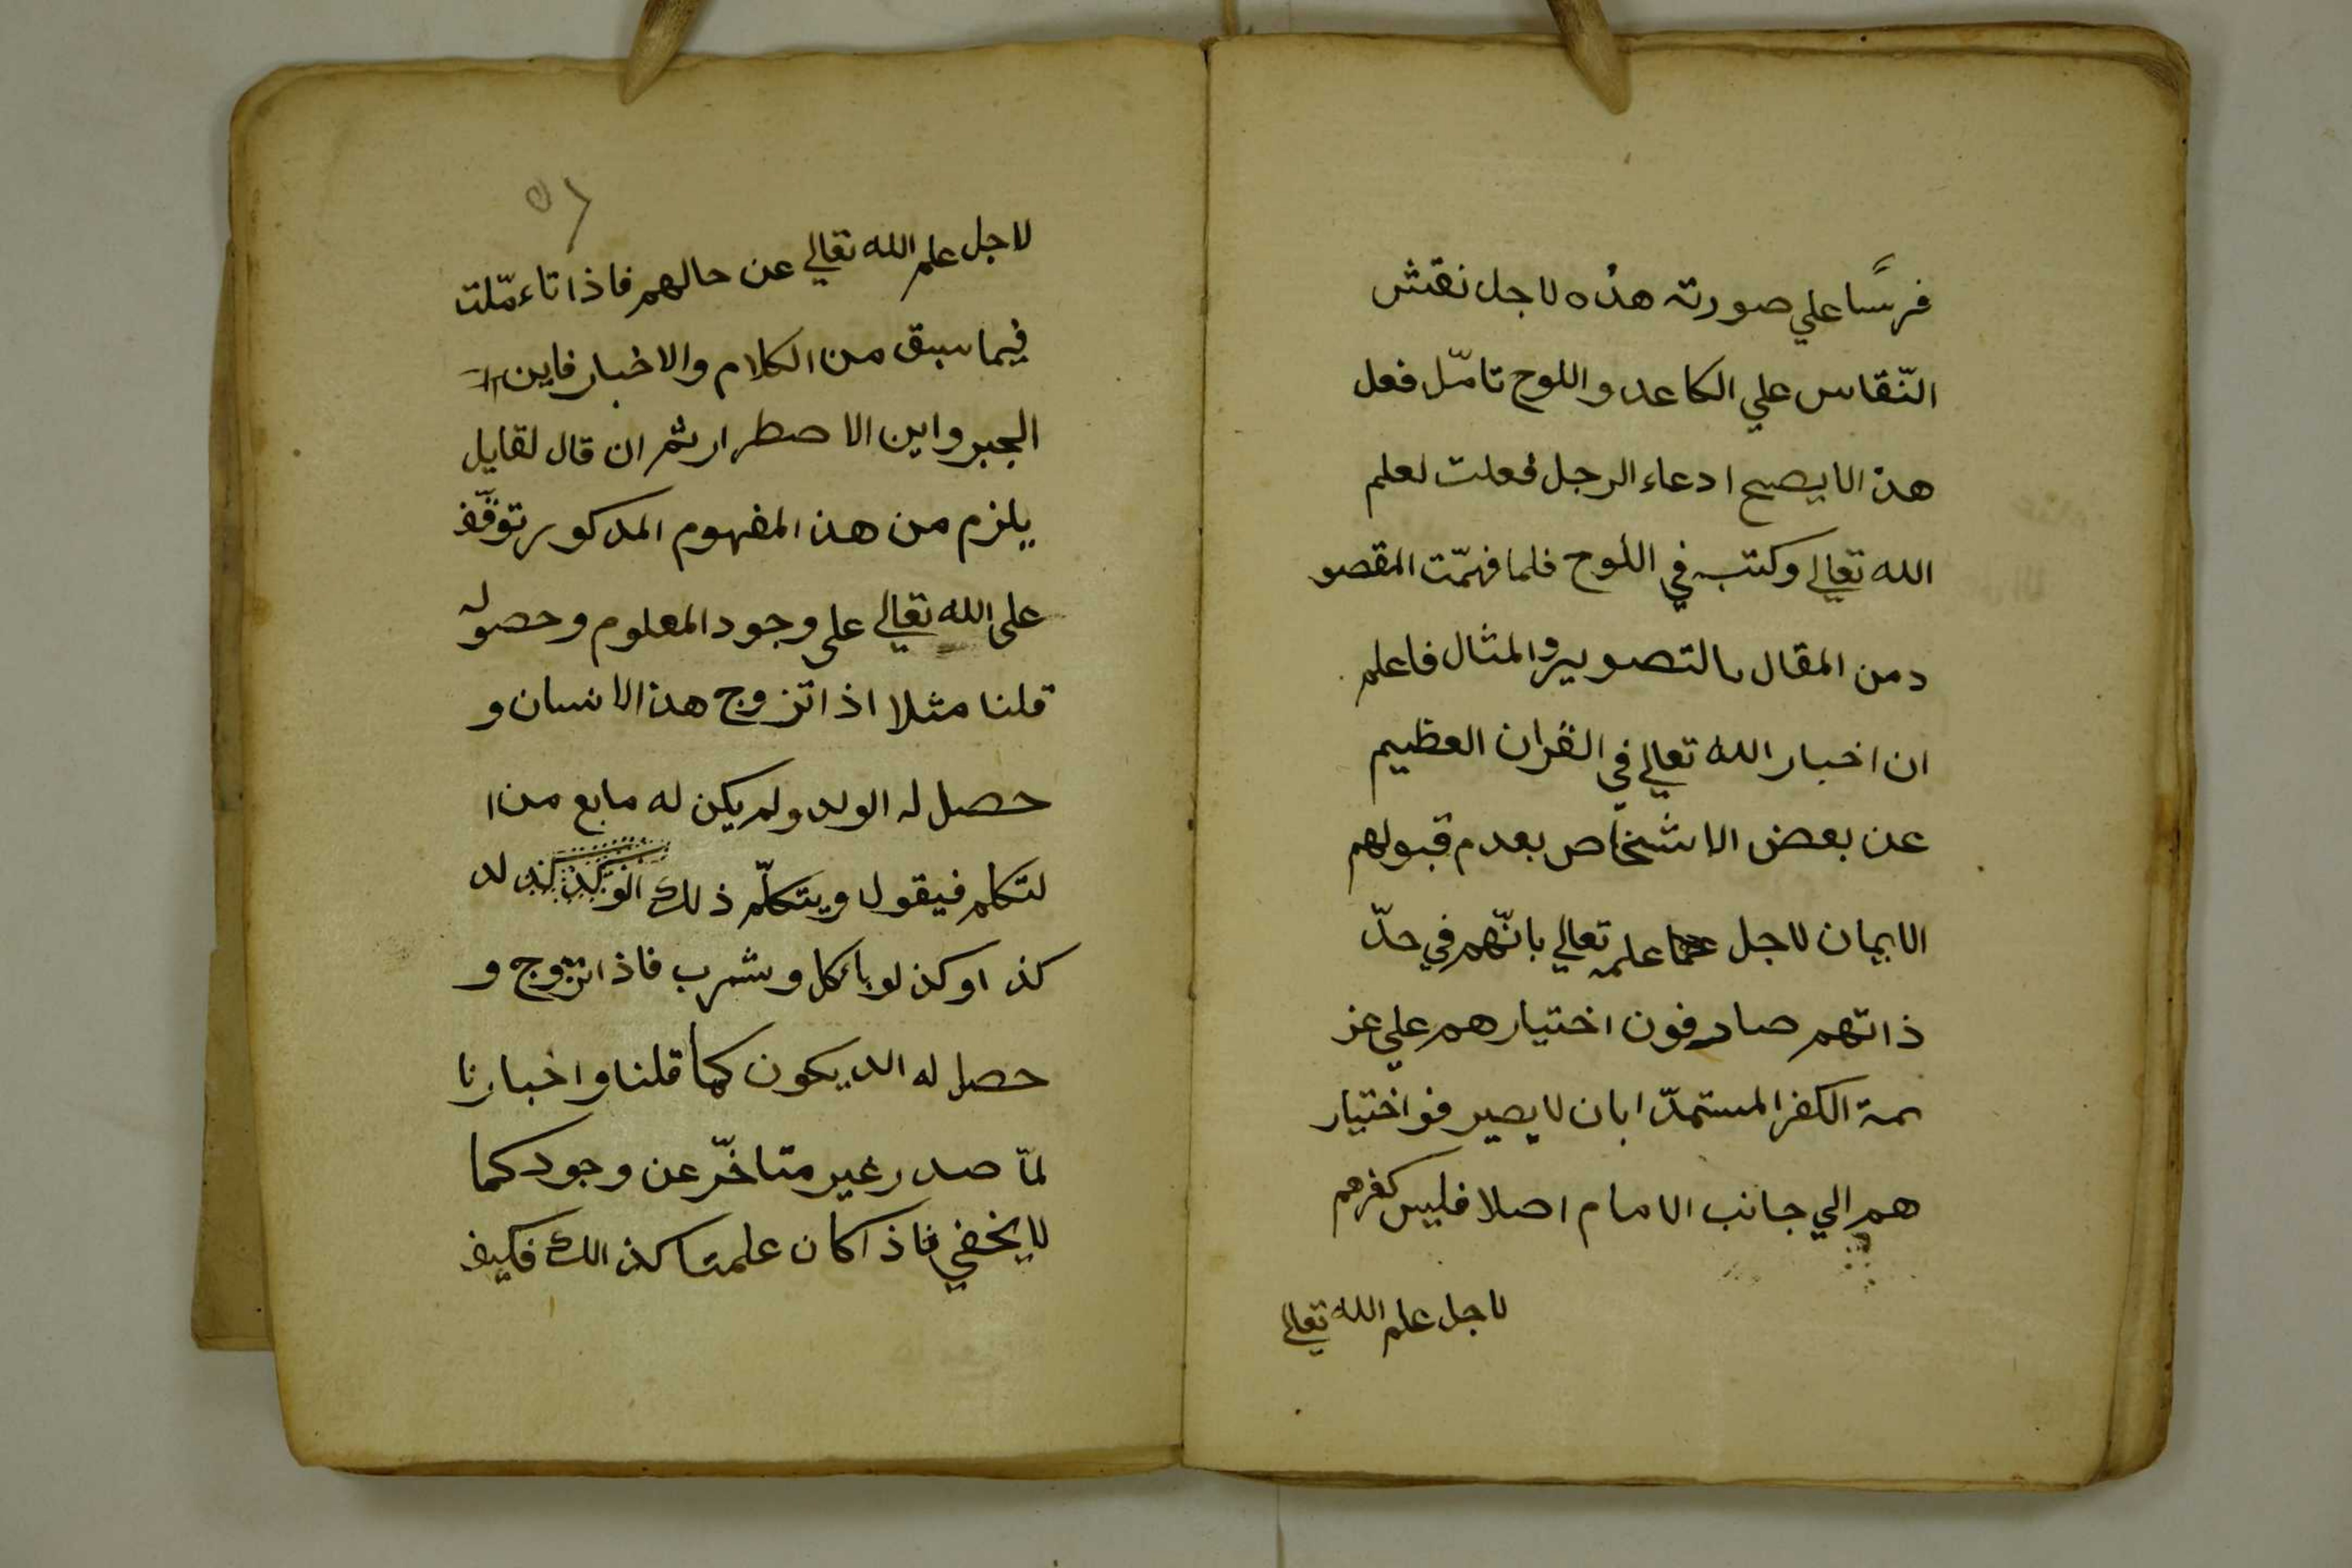 فرسًا علي صورته هذه لاجل نقش
النّقاس علي الكاعد واللوح تامّل فعل
هذا لايصح ادعاء الرجل فعلت لعلم
الله تعالي وكتب في اللوح فلما فهمّت المقصو
د من المقال بالتصوير والمثال فاعلم
ان اخبار الله تعالي في القران العظيم
عن بعض الاشخاص بعدم قبولهم
الايمان لاجل علمه تعالي بانّهم في حدّ
ذاتهم صارفون اختيارهم علي عز
يمة الكفر المستمدّ ابان لايصير فواختيار
هم الي جانب الامام اصلا فليس كفرهم
لاجل علم الله تعالي
٥٦
لاجل علم الله تعالي عن حالهم فاذا تاءمّلت
فيما سبق من الكلام والاخبار فاين
الجبر واين الاصطرار ثم ان قال لقايل
يلزم من هذ المفهوم المدكور توقّف
على الله تعالي على وجود المعلوم وحصوله
قلنا مثلا اذا تزوج هذ الانسان و
حصل له الولد ولم يكن له مابع من ا
لتكلم فيقول ويتكلّم ذلك الولد
كذ اوكذ لوباءكل وشرب فاذا تزوج و
حصل له الد يكون كما قلنا واخبارنا
لمّا صدر غير متاخّر عن وجود كما
لايخفي فاذا كان علمتا كذ الك فكيف